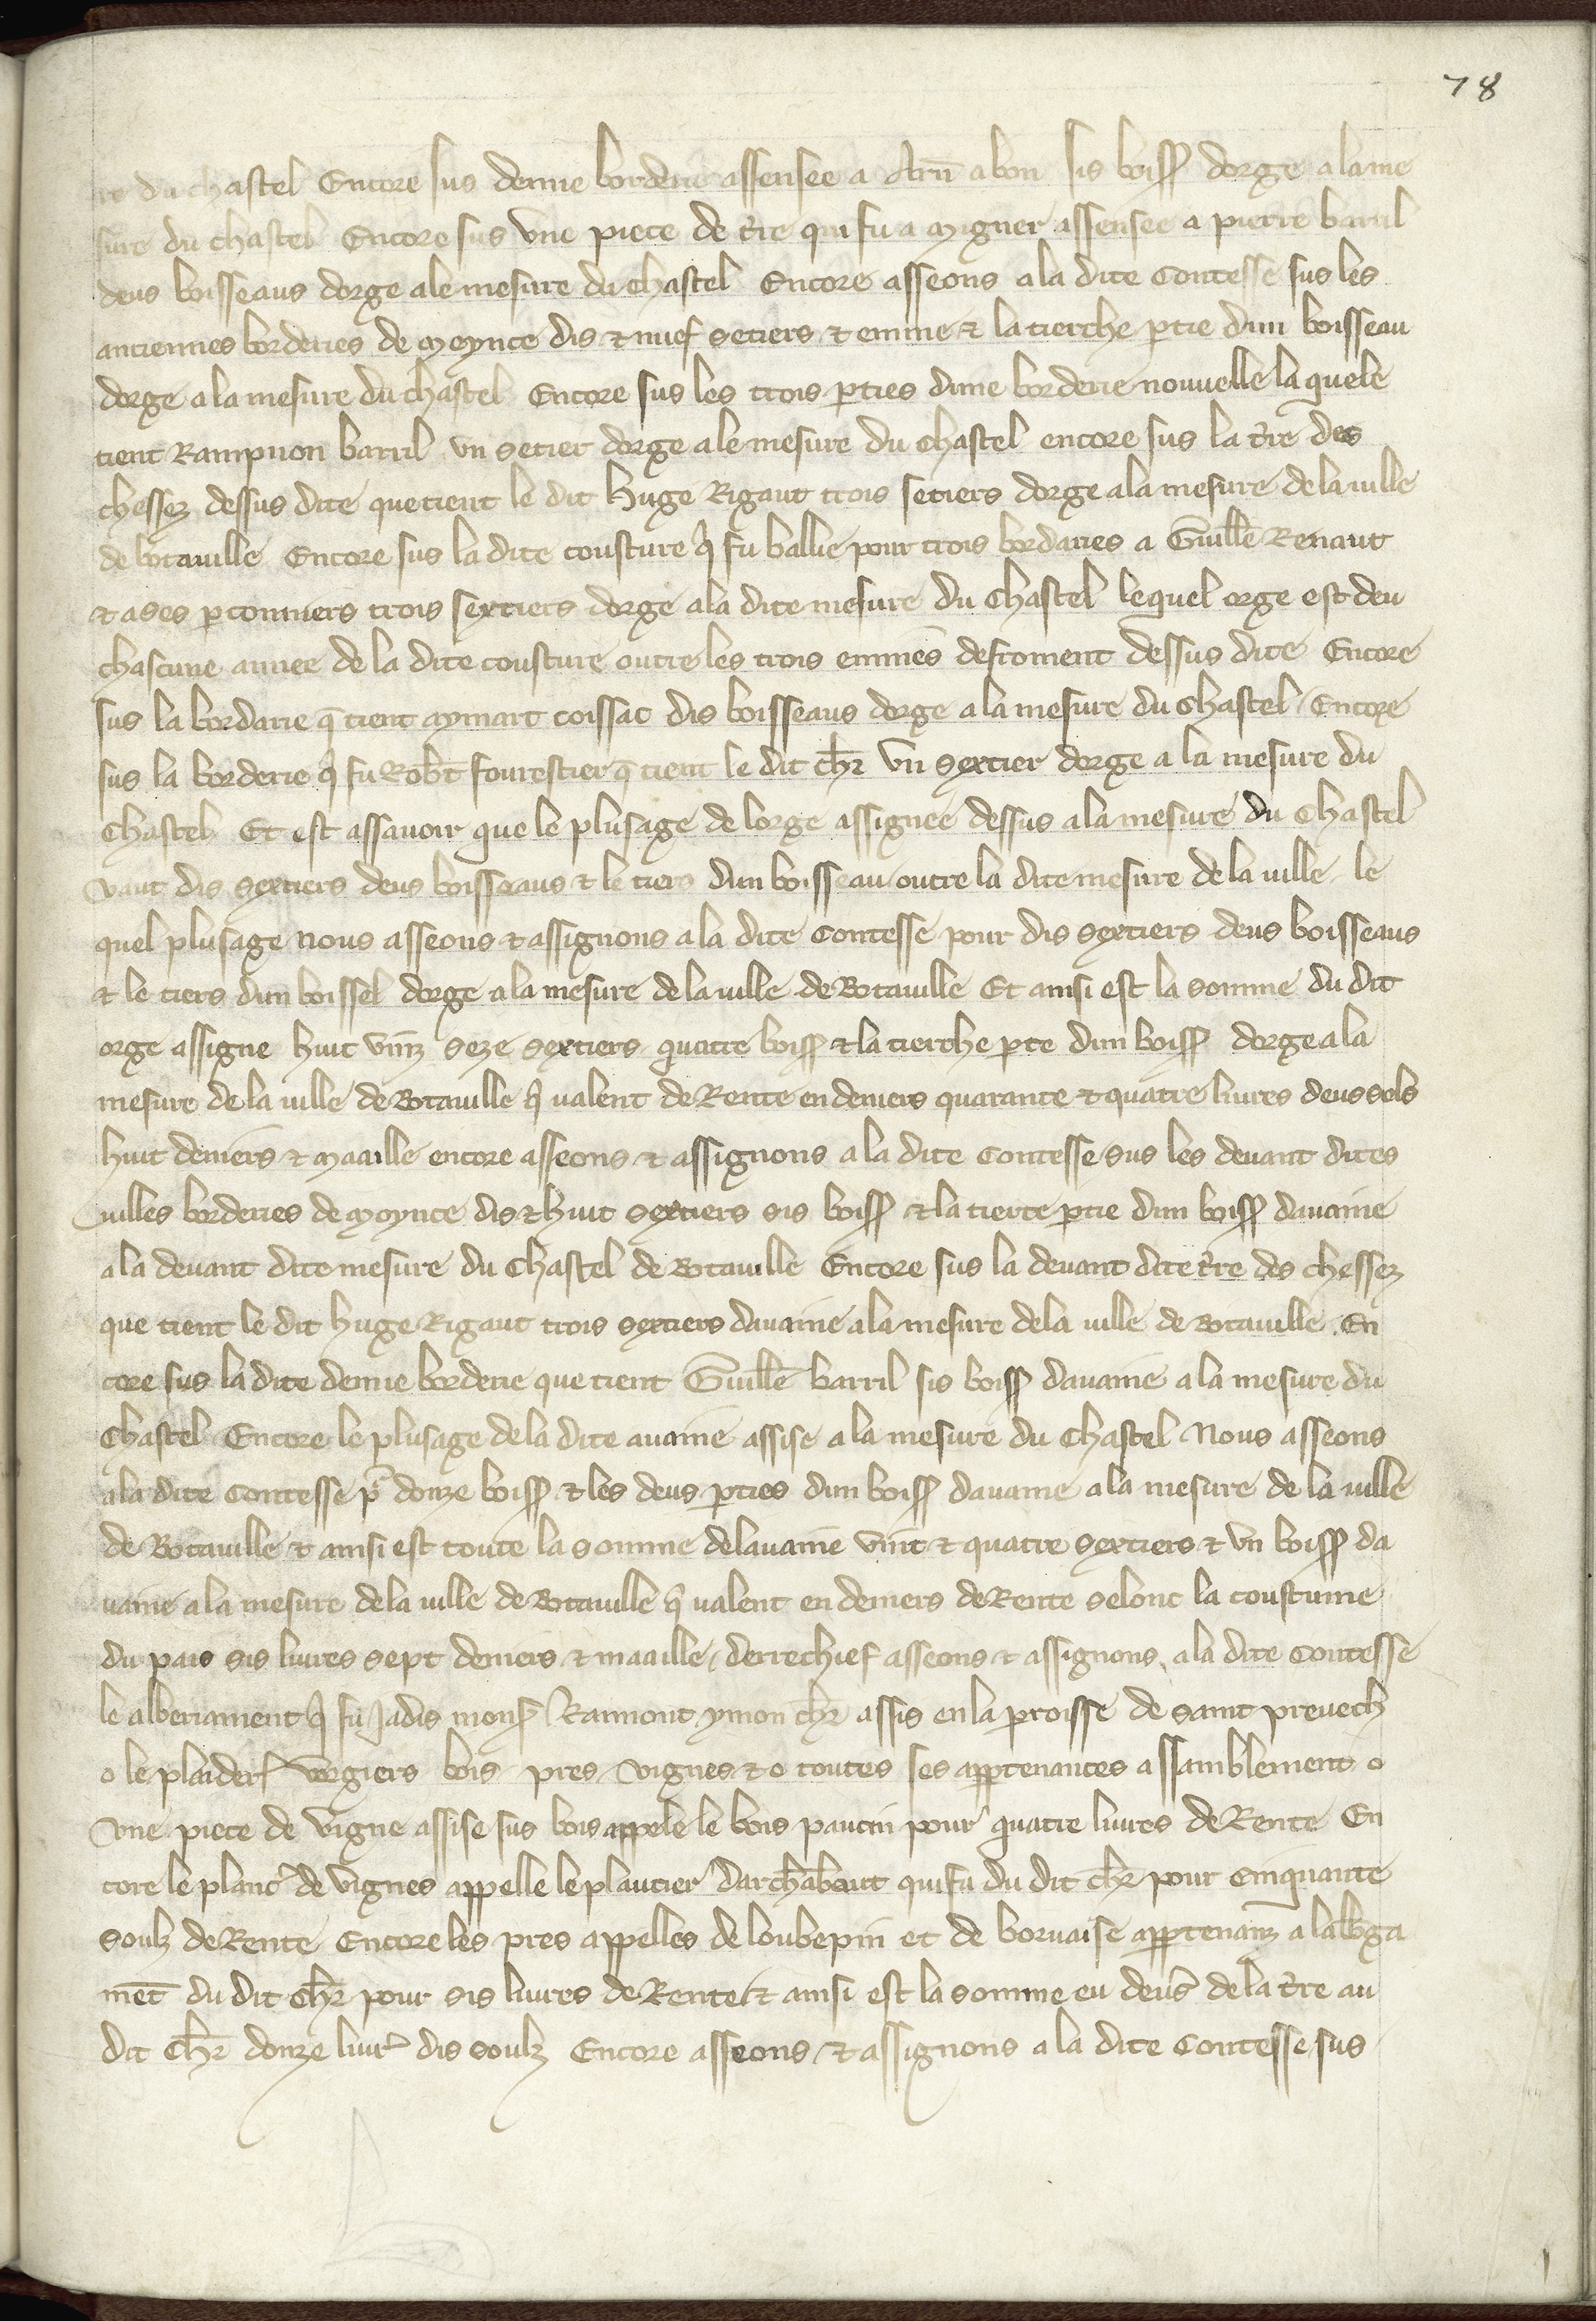 78
re du chastel Encore sus demie borderie assensee a Arn̄ abon sis boiss dorge a la me
sure du chastel Encore sus vne piece de t̄re qui fu a migner assensee a pierre barril
deus boisseaus dorge a le mesure du chastel Encore asseons a la dite Contesse sus les
anciennes borderies de moynce dis & nuef setiers & emine & la tierche ptie dun boisseau
dorge a la mesure du chastel Encore sus les trois pties dune borderie nouuelle la quele
tient Rampnon barril vn setier dorge a le mesure du chastel encore sus la t̄re des
chessez dessus dite que tient le dit huge Rigaut trois setiers dorge a la mesure de la uille
de botauille Encore sus la dite cousture q̄ fu ballie pour trois bordaries a Guill̄e Renaut
& a ses pconniers trois sextiers dorge a la dite mesure du chastel lequel orge est deu
chascune annee de la dite cousture outre les trois emines de froment dessus dite Encore
sus la bordarie q̄ tient aymart coissac dis boisseaus dorge a la mesure du chastel / Encore
sus la borderie q̄ fu Rob̄t fourestier q̄ tient le dit ch̄r vn sextier dorge a la mesure du
chastel Et est assauoir que le plusage de lorge assignee dessus a la mesure du chastel
vaut dis sextiers deus boisseaus & le tiers dun boisseau outre la dite mesure de la uille le
quel plusage nous asseons & assignons a la dite Contesse pour dis sextiers deus boisseaus
& le tiers dun boissel dorge a la mesure de la uille de Botauille Et ainsi est la somme du dit
orge assigne huit vinz seze sextiers quatre boiss & la tierche pte dun boiss dorge a la
mesure de la uille de Botauille q̄ ualent de Rente en deniers quarante & quatre liures deus sols
huit deniers & maaille encore asseons & assignons a la dite Contesse sus les deuant dites
uilles borderies de moynce dis & huit sextiers sis boiss & la tierce ptie dun boiss dauaine
a la deuant dite mesure du chastel de Botauille Encore sus la deuant dite t̄re des chessez
que tient le dit huge Rigaut trois sextiers dauaine a la mesure de la uille de Botauille . En
core sus la dite demie borderie que tient Guill̄e barril sis boiss dauaine a la mesure du
chastel Encore le plusage de la dite auaine assise a la mesure du chastel Nous asseons
a la dite Contesse p̄ douze boiss & les deus pties dun boiss dauaine a la mesure de la uille
de Botauille & ainsi est toute la somme de lauaine vint & quatre sextiers & vn boiss da
uaine a la mesure de la uille de Botauille q̄ ualent en deniers de Rente selonc la coustume
du pais sis liures sept deniers & maaille / derrechief asseons & assignons a la dite Contesse
le alberiament q̄ fu Jadis mons Raimont ymon ch̄r assis en la proisse de saint preuech
o le plaider vergiers bois pres vignes & o toutes ses apptenances assamblement o
vne piece de vigne assise sus bois appele le bois pautin pour quatre liures de Rente En
core le plant̄ de vignes appelle le plantier darchābaut qui fu du dit ch̄r pour cinquante
soulz de Rente Encore les pres appelles de loubepin et de boruaise apptenanz a lalb̄ga
mēt du dit ch̄r pour sis liures de Rente & ainsi est la somme en deus de la t̄re au
dit ch̄r douze liur̄ dis soulz Encore asseons & assignons a la dite Contesse sus